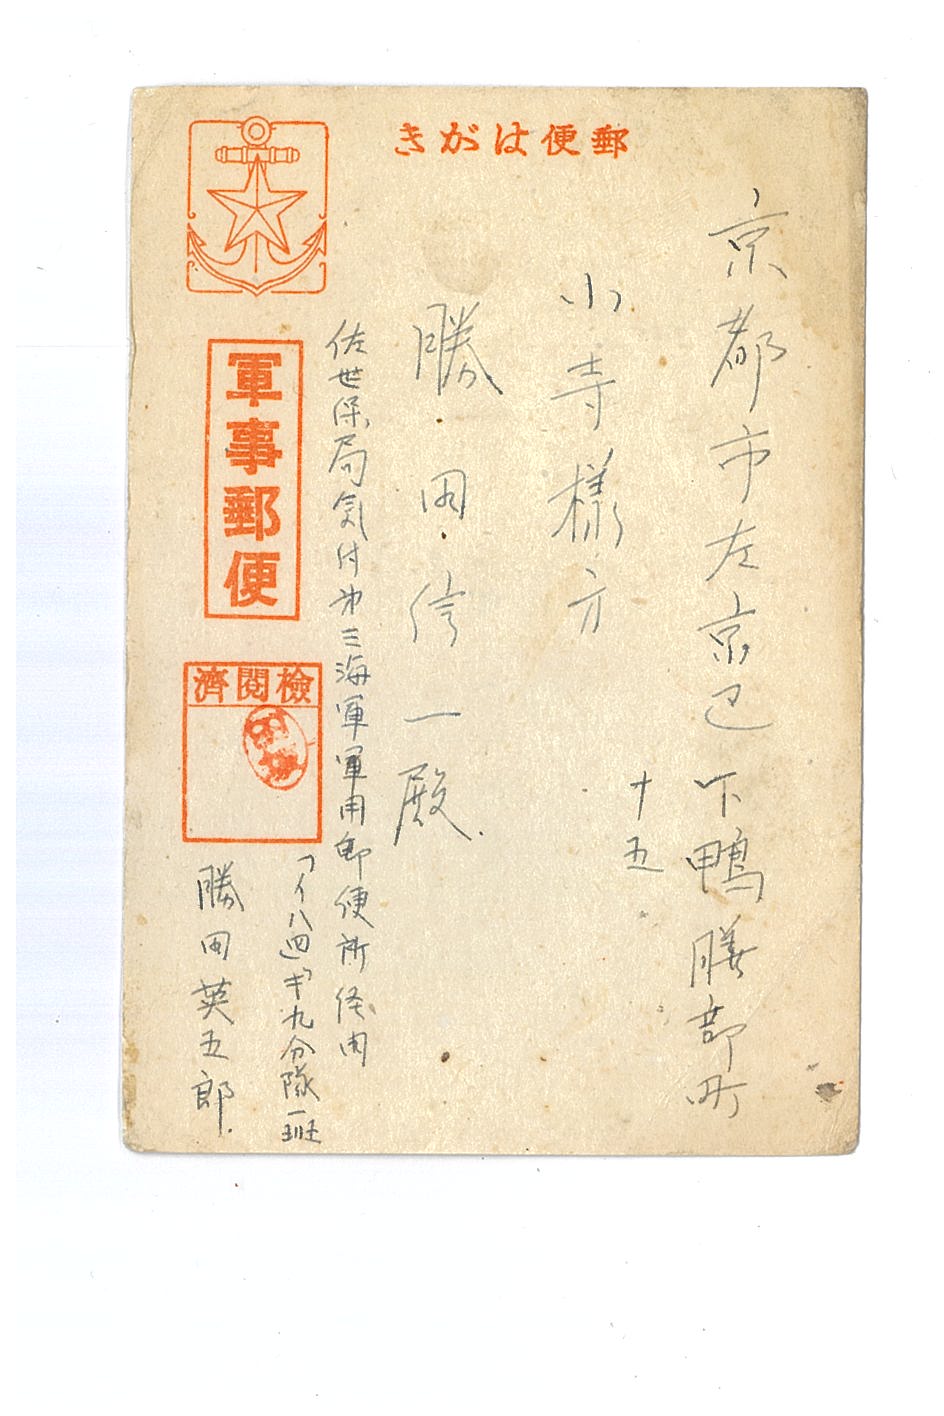 郵便はがき
京都市左京区下鴨膳部町
十五
小寺様方
勝田信一殿
佐世保局気付第三海軍軍用郵便所経由
ワイ八四ギ九分隊一班
勝田英五郎
軍事郵便
檢閲濟